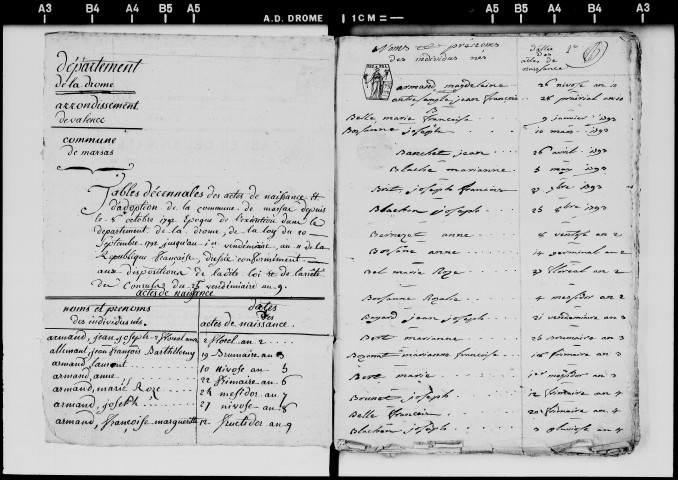 A3 B4 A4 B5 A5
A.D. DROME
1 CM =
A5 B5 A4 B4 A3
département
de la drome
arrondissement
de valence
commune
de marsas
Tables décennales des actes de naissance et
d'adoption de la commune de marsas depuis
le octobre 1792 Epoque de l'exécution dans le
département de la drome, de la loy du 20
Septembre 1792 jusqu'au 1er vendémiaire an 11 de la
République française, dressée conformément
aux dispositions de ladite loi et de l'arrêté
des Consuls du 25 vendémiaire an 9.
actes de naissance
noms et prenoms
des individus nés.
dates
des
actes de naissance.
armand, jean joseph 2 floreal an 2
allimant, jean françois Barthélemy 19 Brumaire an 3
armand laurent 10 nivose an 5
armand anne 22 frimaire an 6
armand, marie Roze 24 messidor an 7
armand, joseph 27 nivose an 8
armand, françoise marguerite 12 fructidor an 9
Noms et prénoms
des individus nés
dattes
des
actes de
naissance
armand magdelaine 26 nivose an 10
jean françois 28 prairial an 10
B
Belle marie françoise 9 janvier 1793
Bossanne joseph 10 mars 1793
Banchet jean 26 avril 1793
Blache marianne 5 may 1793
joseph françois 9bre 1793
Blachon joseph 25 8bre 1793
anne 8 ventose an 2
Bossane anne 14 germinal an 2
Bel marie Roze floréal an 2
Bossanne Rosalie 4 messidor an 2
Bayard jean joseph 21 vendemiaire an 3
Bert marianne 25 brumaire an 3
marianne françoise 16 frimaire an 3
Bert marie messidor an 3
Brunet joseph 12 frimaire an 4
Belle françois 20 frimaire an 4
Blachon joseph 3 pluviose an 4